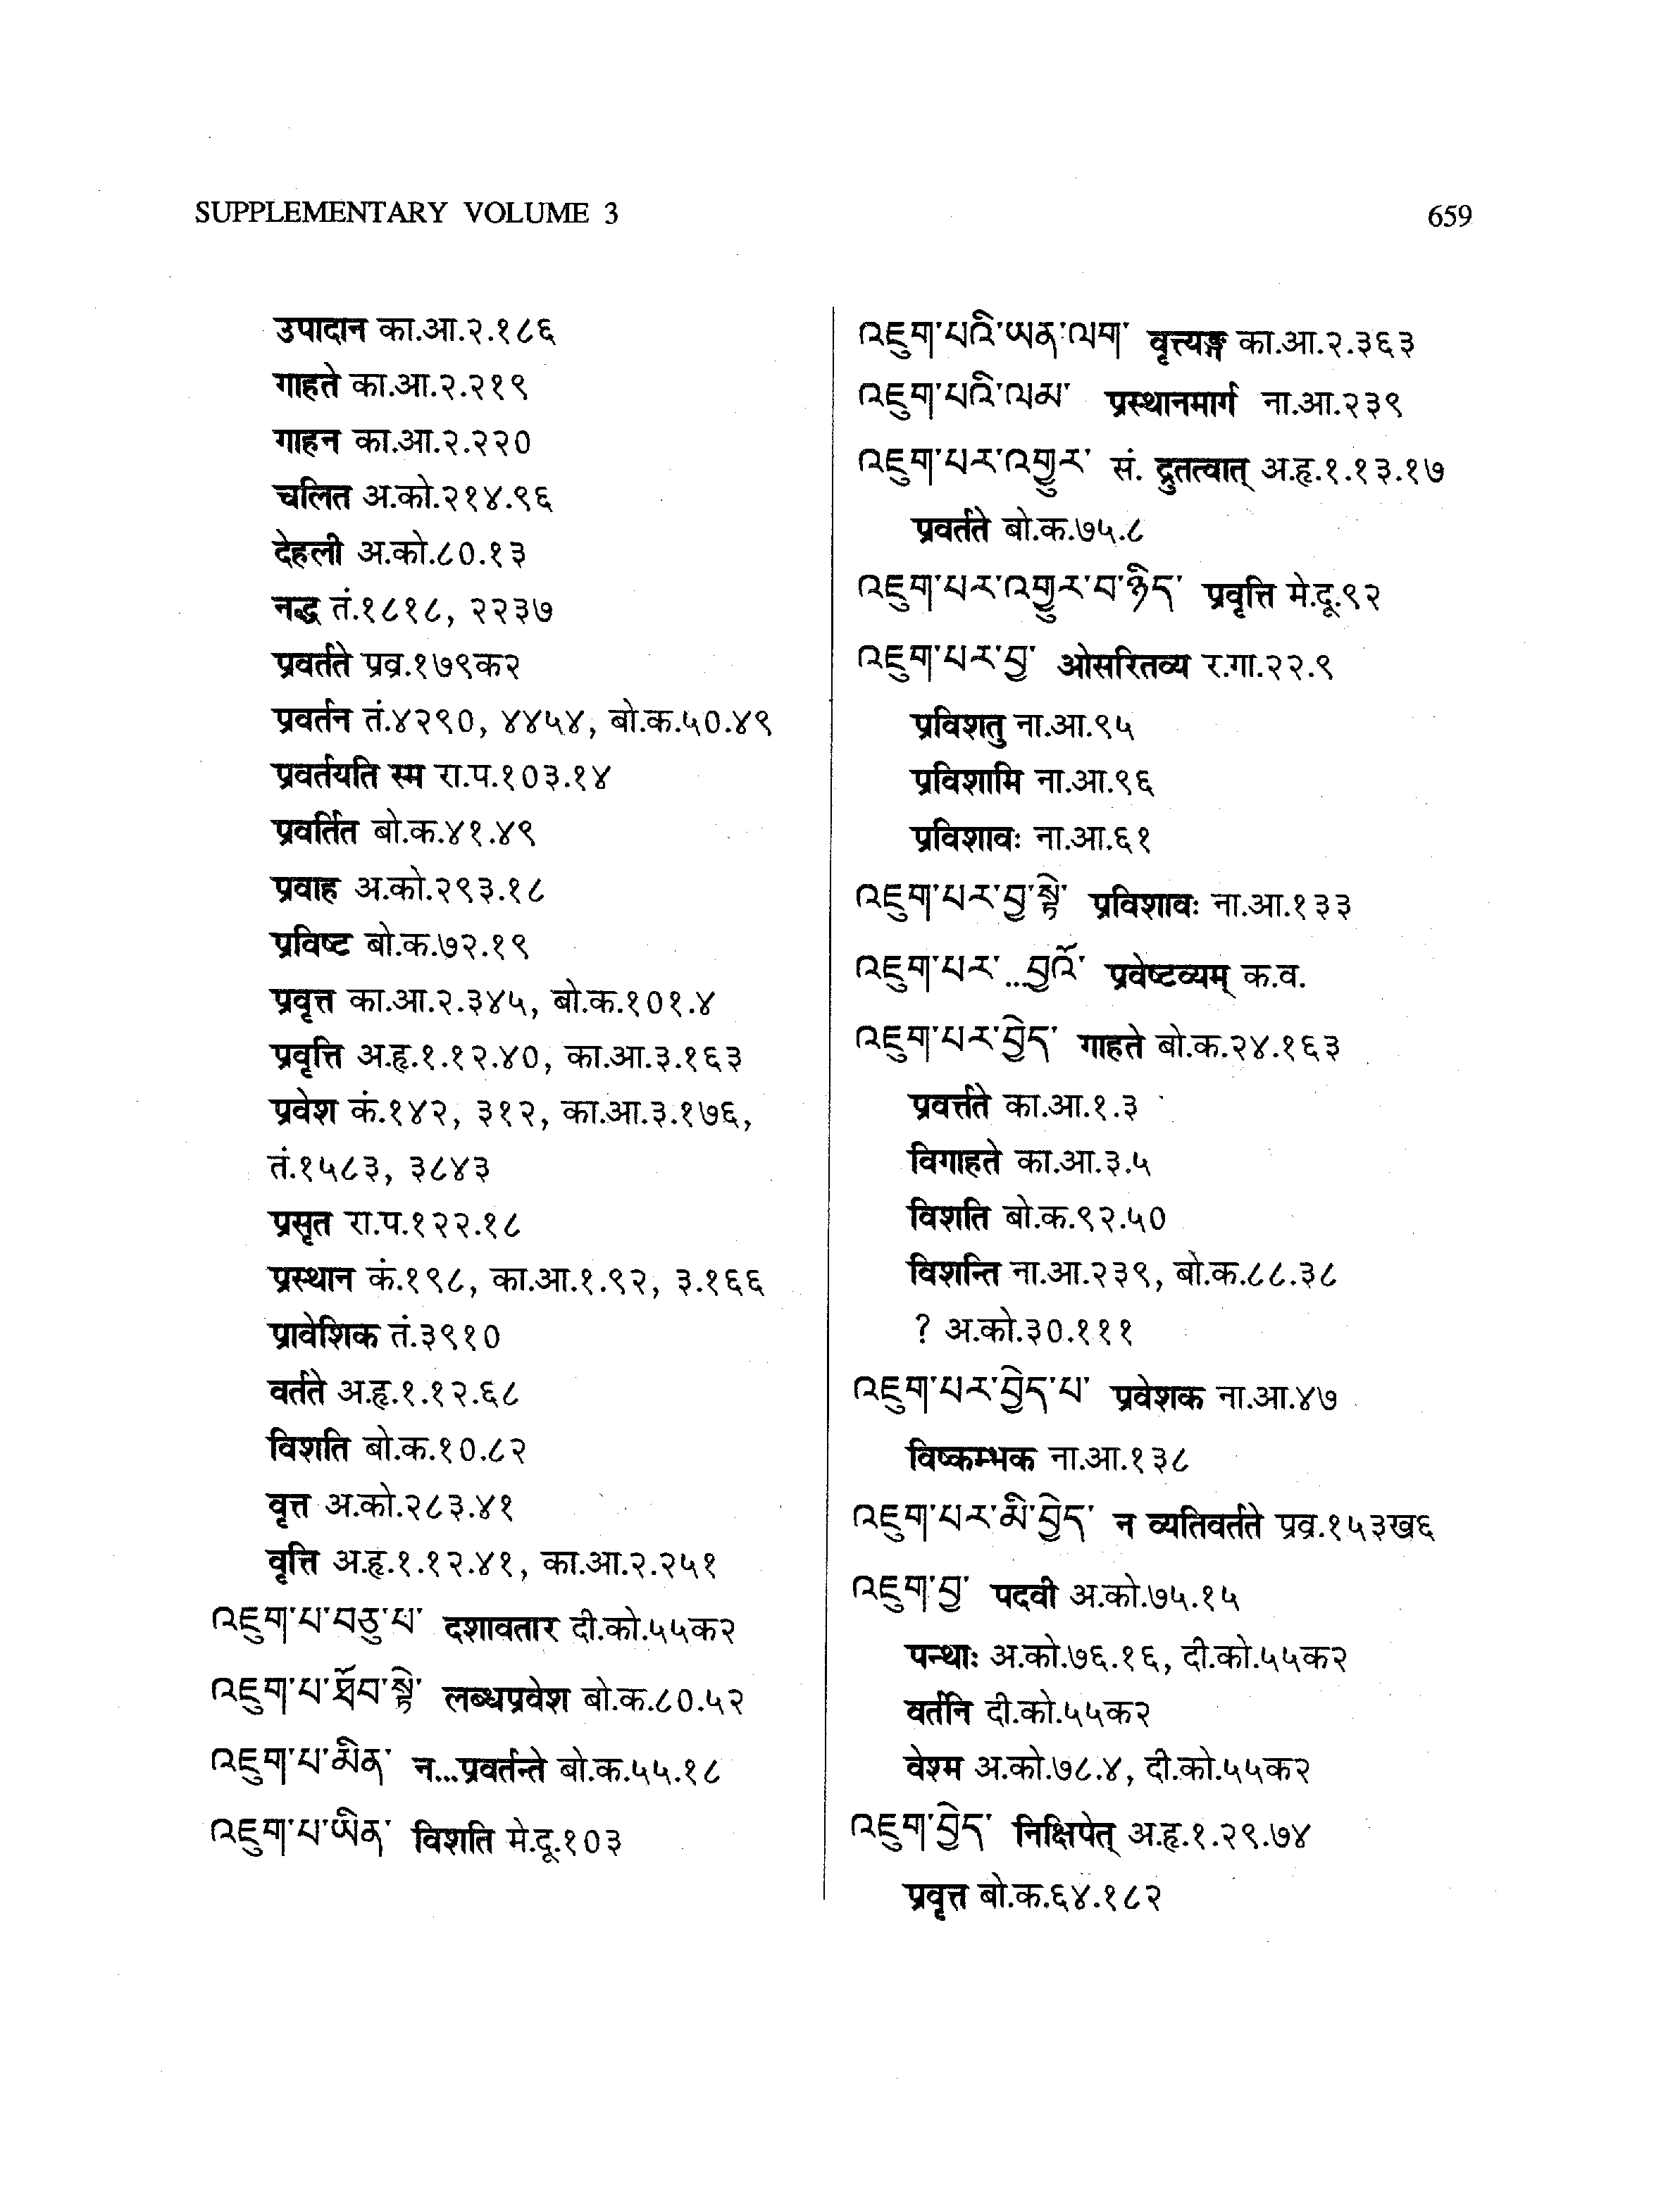 SUPPLEMENTARY VOLUME 3
659
उपादान का.आ.२.१८६
गाहते का.आ.२.२१९
गाहन का.आ.२.२२०
चलित अ.को.२१४.९६
देहली अ.को.८०.१३
नद्ध तं.१८१८, २२३७
प्रवर्तते प्रव्र.१७९क२
प्रवर्तन तं.४२९०, ४४५४, बो.क.५०.४९
प्रवर्तयति स्म रा.प.१०३.१४
प्रवर्तित बो.क.४१.४९
प्रवाह अ.को.२९३.१८
प्रविष्ट बो.क.७२.१९
प्रवृत्त का.आ.२.३४५, बो.क.१०१.४
प्रवृत्ति अ.हृ.१.१२.४०, का.आ.३.१६३
प्रवेश कं.१४२, ३१२, का.आ.३.१७६,
तं.१५८३, ३८४३
प्रसृत रा.प.१२२.१८
प्रस्थान कं.१९८, का.आ.१.९२, ३.१६६
प्रावेशिक तं.३९१०
वर्तते अ.हृ.१.१२.६८
विशति बो.क.१०.८२
वृत्त अ.को.२८३.४१
वृत्ति अ.हृ.१.१२.४१, का.आ.२.२५१
འཇུག་པ་བཅུ་པ་ दशावतार दी.को.५५क२
འཇུག་པ་ཐོབ་སྟེ་ लब्धप्रवेश बो.क.८०.५२
འཇུག་པ་མིན་ न...प्रवर्तन्ते बो.क.५५.१८
འཇུག་པ་ཡིན་ विशति मे.दू.१०३
འཇུག་པའི་ཡན་ལག་ वृत्त्यङ्ग का.आ.२.३६३
འཇུག་པའི་ལམ་ प्रस्थानमार्ग ना.आ.२३९
འཇུག་པར་འགྱུར་ सं. द्रुतत्वात् अ.हृ.१.१३.१७
प्रवर्तते बो.क.७५.८
འཇུག་པར་འགྱུར་བ་ཉིད་ प्रवृत्ति मे.दू.९२
འཇུག་པར་བྱ་ ओसरितव्य र.गा.२२.९
प्रविशतु ना.आ.९५
प्रविशामि ना.आ.९६
प्रविशावः ना.आ.६१
འཇུག་པར་བྱ་སྟེ་ प्रविशावः ना.आ.१३३
འཇུག་པར་...བྱའོ་ प्रवेष्टव्यम् क.व.
འཇུག་པར་བྱེད་ गाहते बो.क.२४.१६३
प्रवर्त्तते का.आ.१.३
विगाहते का.आ.३.५
विशति बो.क.९२.५०
विशन्ति ना.आ.२३९, बो.क.८८.३८
? अ.को.३०.१११
འཇུག་པར་བྱེད་པ་ प्रवेशक ना.आ.४७
विष्कम्भक ना.आ.१३८
འཇུག་པར་མི་བྱེད་ न व्यतिवर्तते प्रव्र.१५३ख६
འཇུག་བྱ་ पदवी अ.को.७५.१५
पन्थाः अ.को.७६.१६, दी.को.५५क२
वर्तनि दी.को.५५क२
वेश्म अ.को.७८.४, दी.को.५५क२
འཇུག་བྱེད་ निक्षिपेत् अ.हृ.१.२९.७४
प्रवृत्त बो.क.६४.१८२